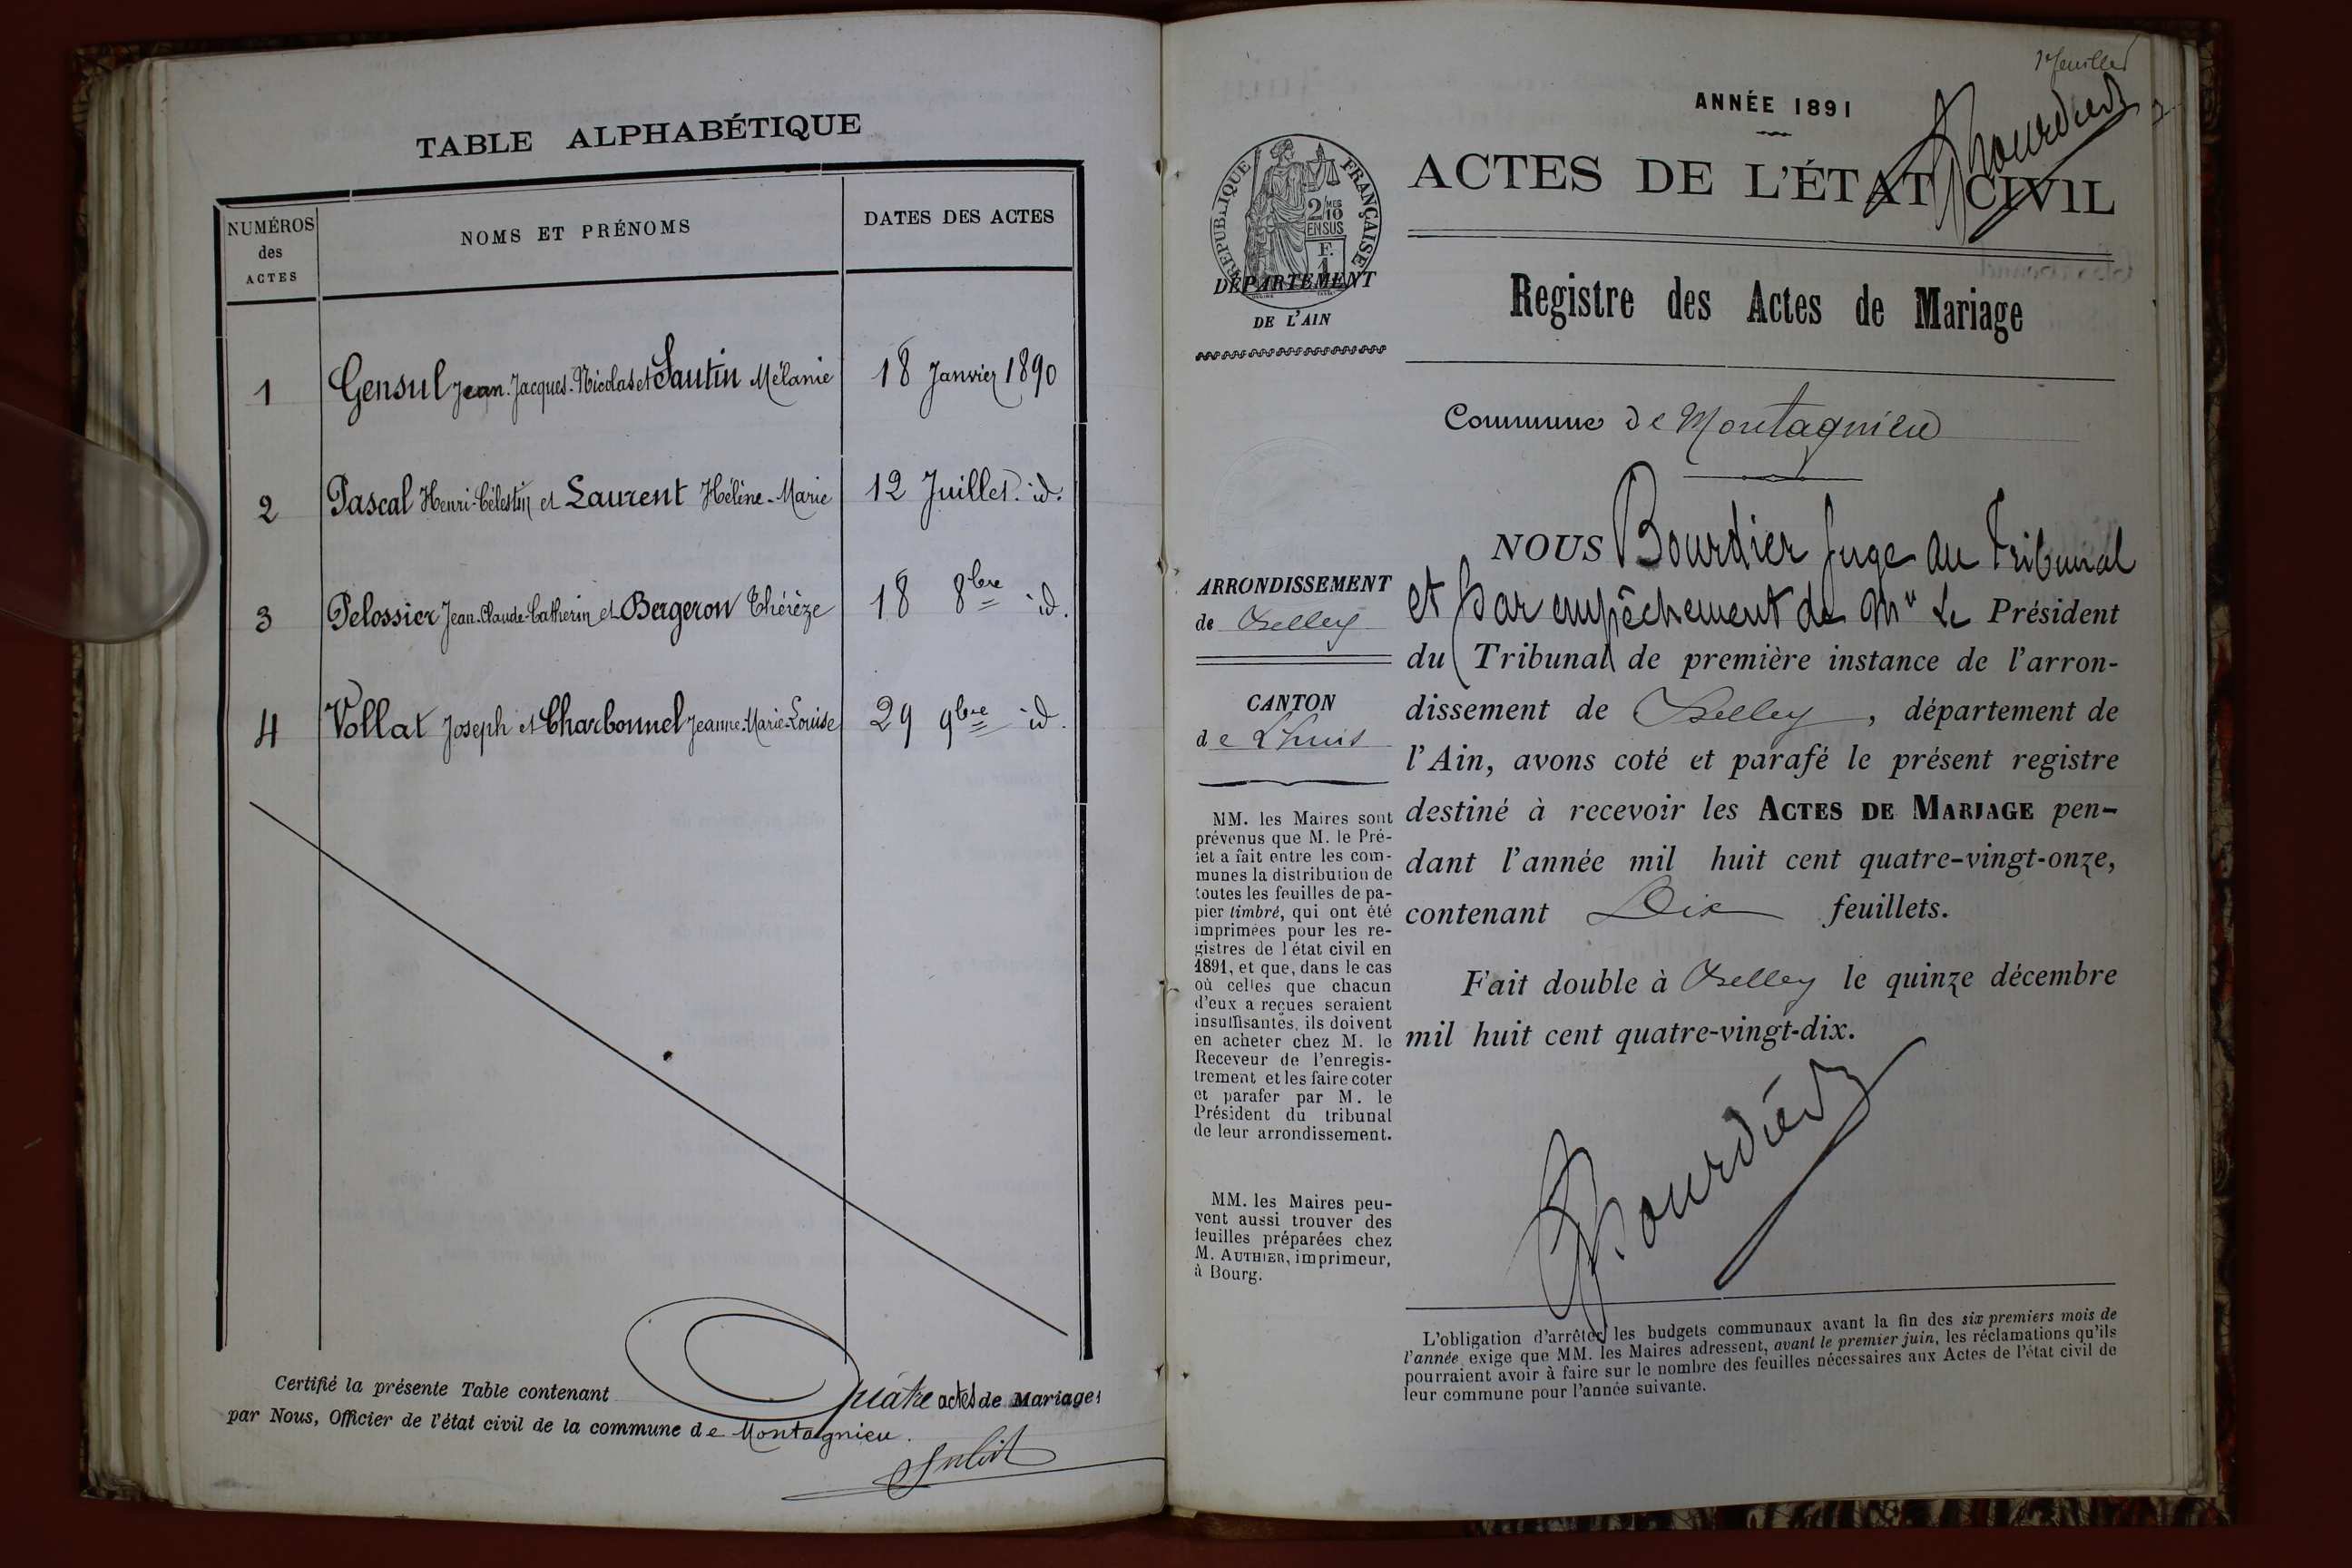 TABLE ALPHABÉTIQUE
NUMÉROS
des
ACTES
NOMS ET PRÉNOMS
DATES DES ACTES
1 Gensul Jean-Jacques-Nicolas et Sautin Mélanie 18 Janvier 1890
2 Pascal Henri-Célestin et Laurent Hélène-Marie 12 Juillet id.
3 Pelossier Jean-Claude-Catherin et Bergeron Thérèze 18 8bre id.
4 Vollat Joseph et Charbonnel Jeanne-Marie-Louise 29 9bre id.
Certifié la présente Table contenant Quatre actes de Mariages
par Nous, Officier de l'état civil de la commune de Montagnieu.
1er feuillet
Bourdier
ANNÉE 1891
ACTES DE L'ÉTAT CIVIL
RÉPUBLIQUE FRANÇAISE
2/10 MES
EN SUS
F.
1
DÉPARTEMENT
DE L'AIN
Registre des Actes de Mariage
Commune de Montagnieu
ARRONDISSEMENT
de Belley
CANTON
de Lhuis
MM. les Maires sont
prévenus que M. le Pré-
fet a fait entre les com-
munes la distribution de
toutes les feuilles de pa-
pier timbré, qui ont été
imprimées pour les re-
gistres de l'état civil en
1891, et que, dans le cas
où celles que chacun
d'eux a reçues seraient
insuffisantes, ils doivent
en acheter chez M. le
Receveur de l'enregis-
trement et les faire coter
et parafer par M. le
Président du tribunal
de leur arrondissement.
MM. les Maires peu-
vent aussi trouver des
feuilles préparées chez
M. AUTHIER, imprimeur,
à Bourg.
NOUS Bourdier Juge au Tribunal
et par empêchement de Mr Le Président
du Tribunal de première instance de l'arron-
dissement de Belley, département de
l'Ain, avons coté et parafé le présent registre
destiné à recevoir les ACTES DE MARIAGE pen-
dant l'année mil huit cent quatre-vingt-onze,
contenant Dix feuillets.
Fait double à Belley le quinze décembre
mil huit cent quatre-vingt-dix.
Bourdier
L'obligation d'arrêter les budgets communaux avant la fin des six premiers mois de
l'année exige que MM. les Maires adressent, avant le premier juin, les réclamations qu'ils
pourraient avoir à faire sur le nombre des feuilles nécessaires aux Actes de l'état civil de
leur commune pour l'année suivante.